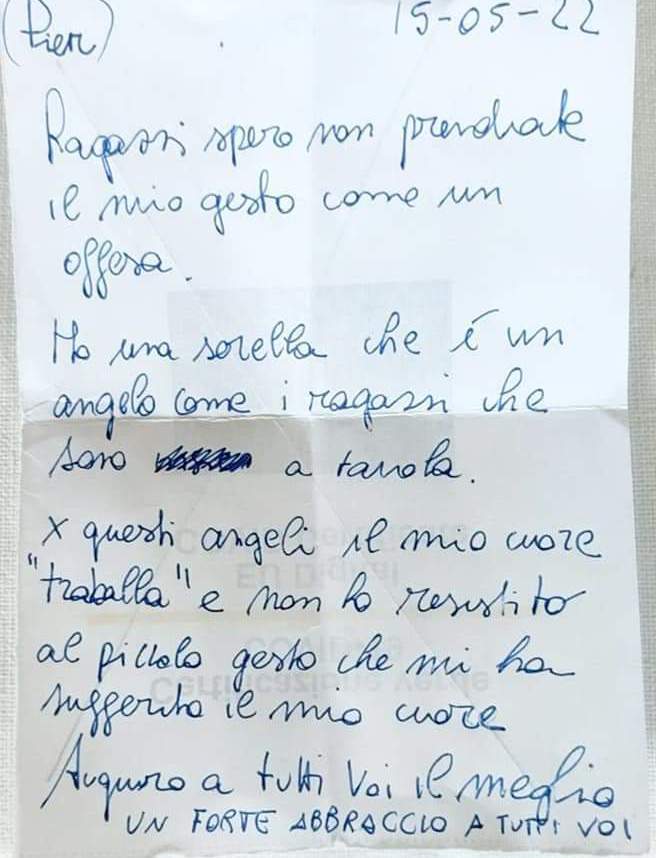 (Pier) 15-05-22
Ragazzi spero non prendiate
il mio gesto come un
offesa.
Ho una sorella che é un
angelo come i ragazzi che
sono a tavola.
X questi angeli il mio cuore
"traballa" e non ho resistito
al piccolo gesto che mi ha
suggerito il mio cuore
Auguro a tutti Voi il meglio
UN FORTE ABBRACCIO A TUTTI VOI
EU Digital
COVID
Certificazione verde